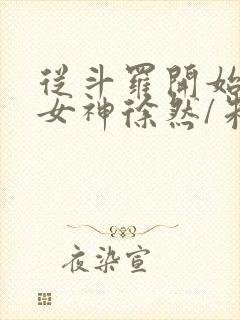 從斗羅開始
女神徐然/
夜染宣